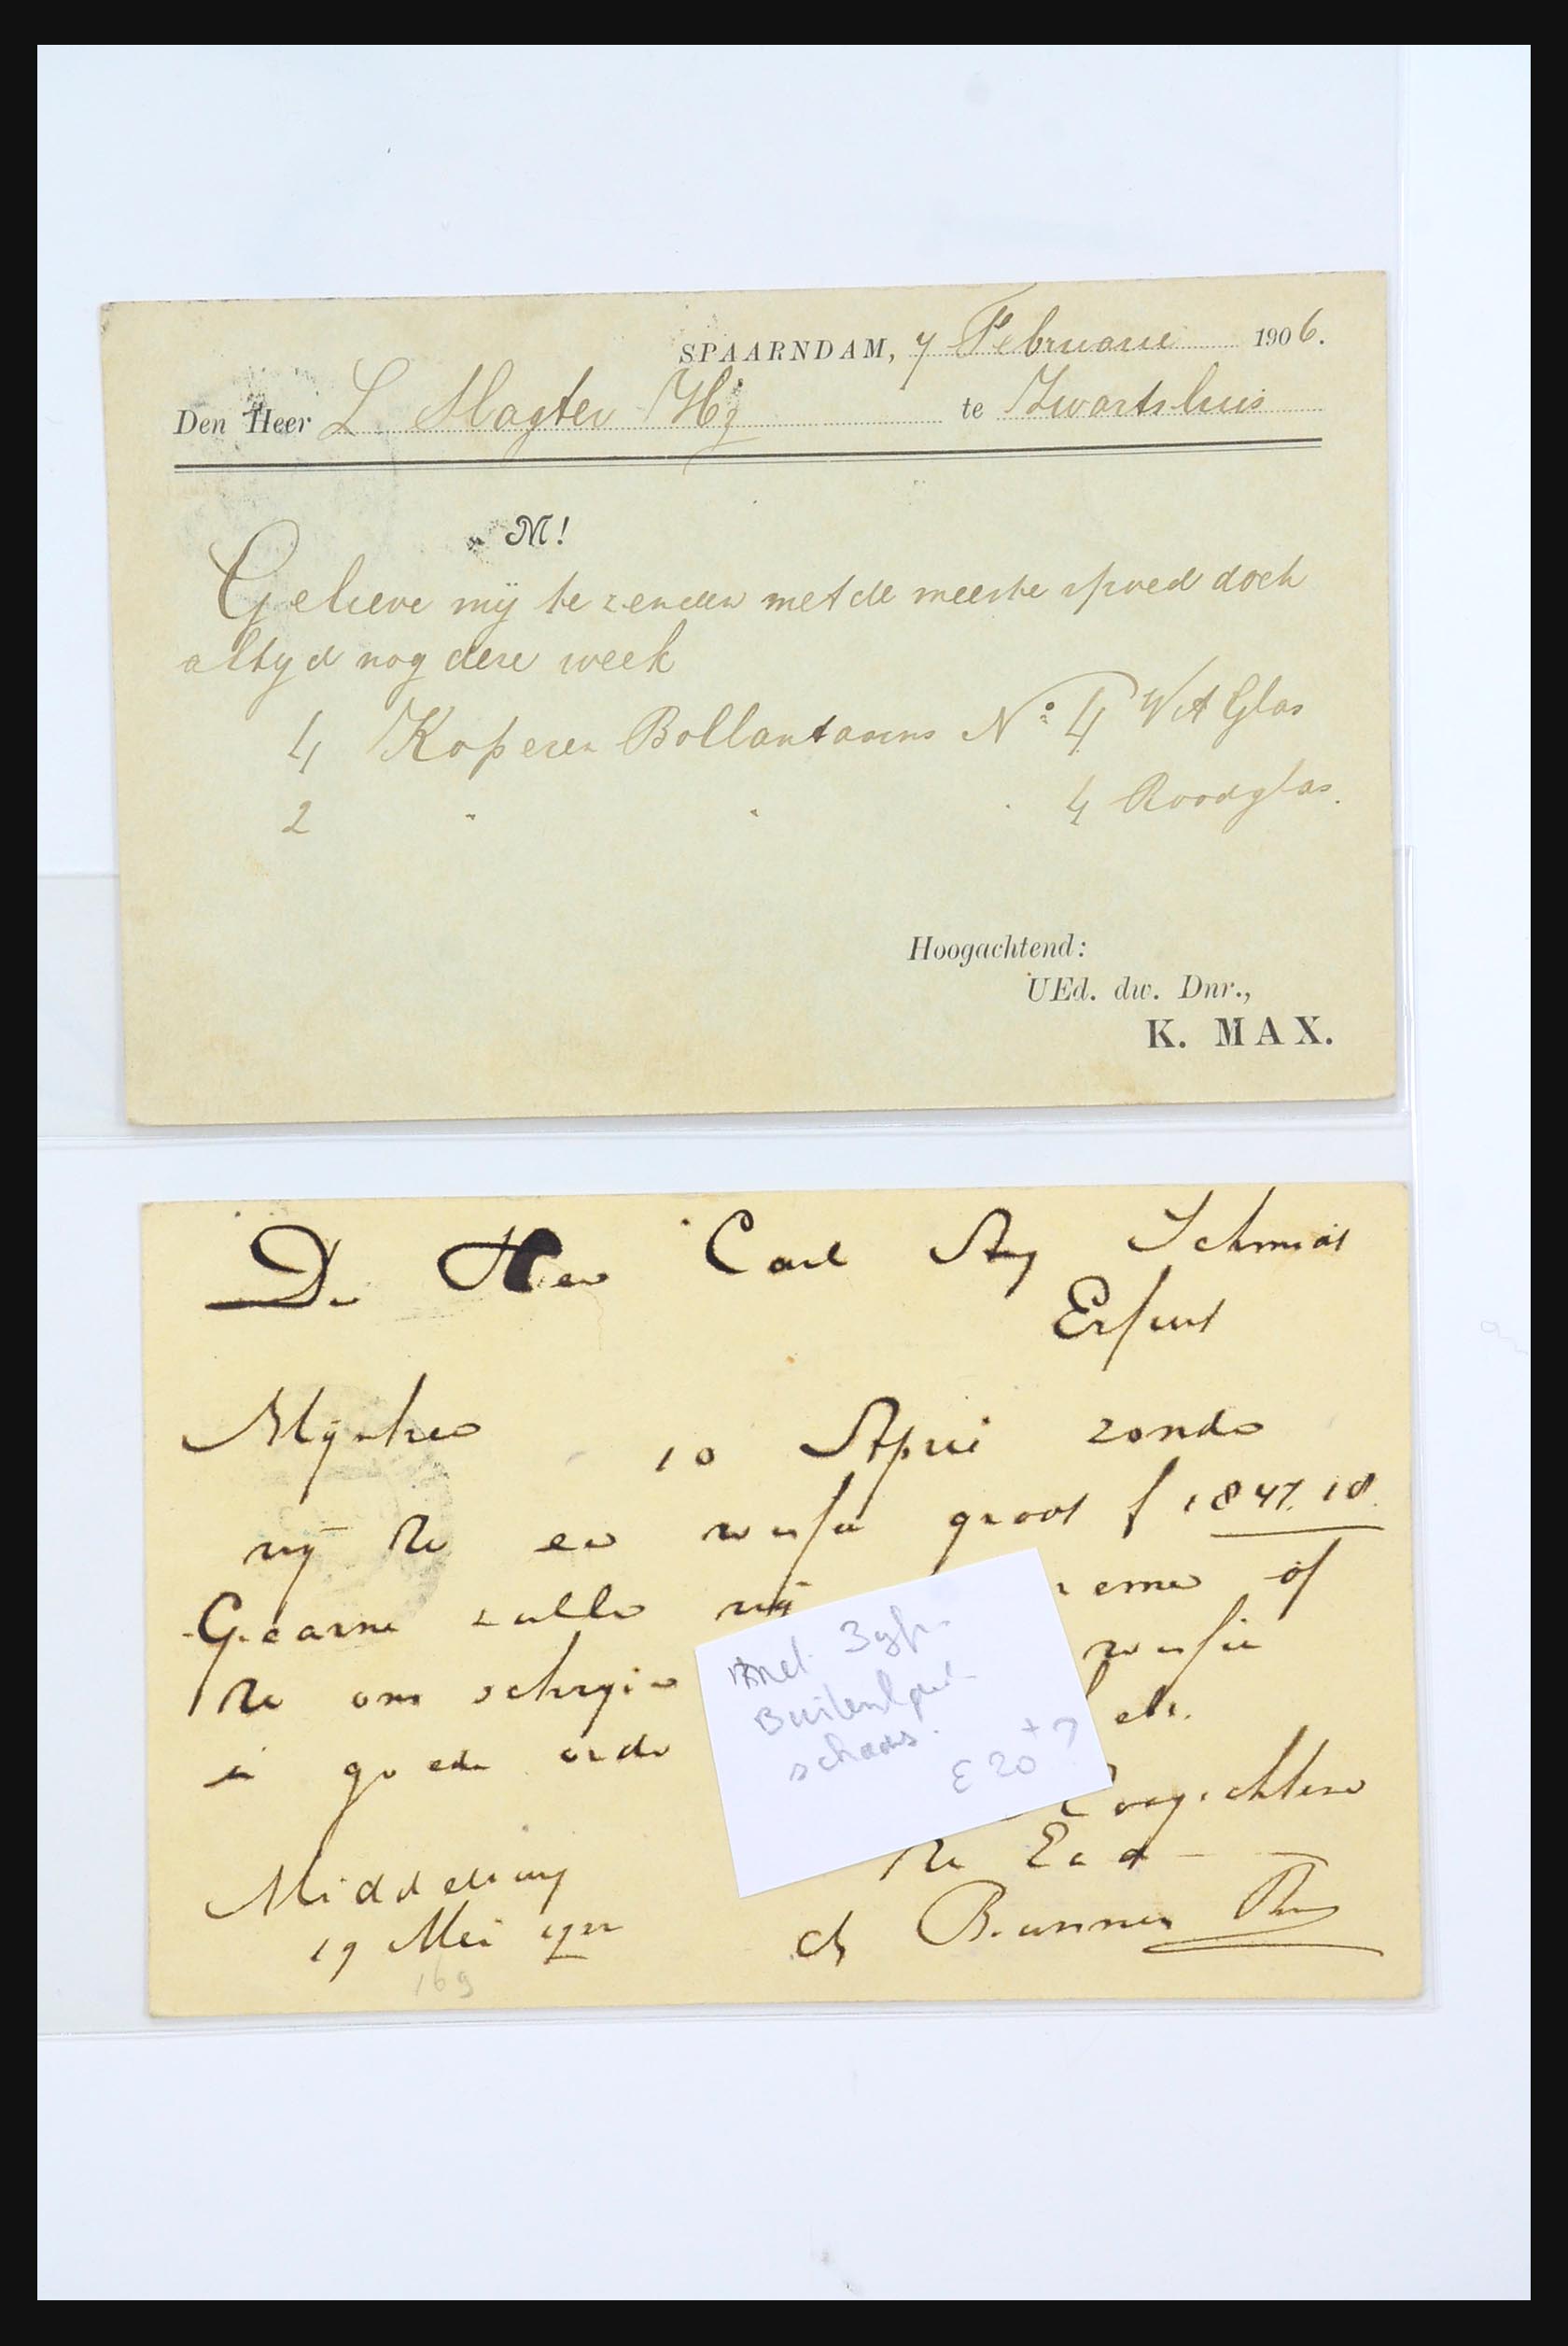 SPAARNDAM, 7 Februarie 1906.
Den Heer L Slagter Hz te Zwartsluis
M!
Gelieve mij te zenden met de meeste spoed doch
altyd nog deze week
4 Koperen Bollantaarns No 4 Wit Glas
2 " " " 4 Roodglas.
Hoogachtend:
UEd. dw. Dnr.,
K. MAX.
De Heer Carl Aug Schmidt
Erfurt
Mijnheer
10 April zonden
wij Ue een groot f 1847.18
Gaarne zullen wij of
Ue ons schrijven
in goede orde
Hoogachtend
Middelburg
19 Mei
169
met
Buitenl
€ 20